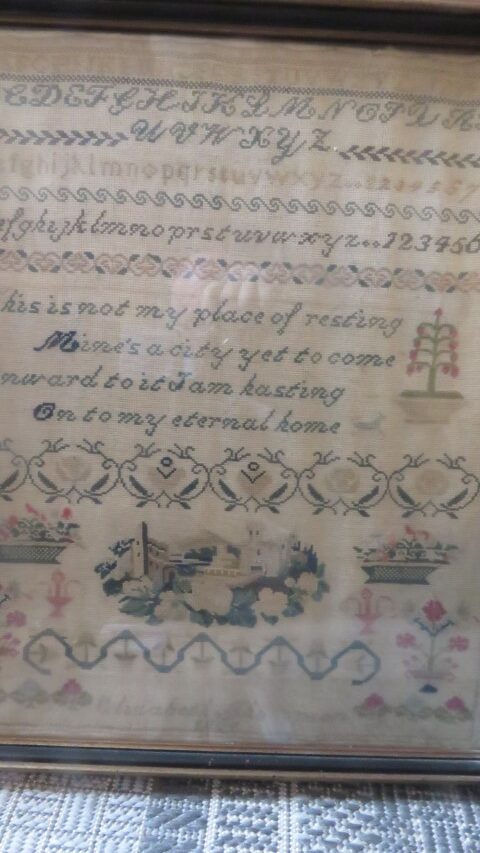 CDEFGHIJKLMNOPQR
UVWXYZ
efghijklmnopqrstuvwxyz..1234567
efghijklmnoprstuvwxyz..123456
his is not my place of resting
Mine's a city yet to come
nward to it I am hasting
On to my eternal home
Elizabeth